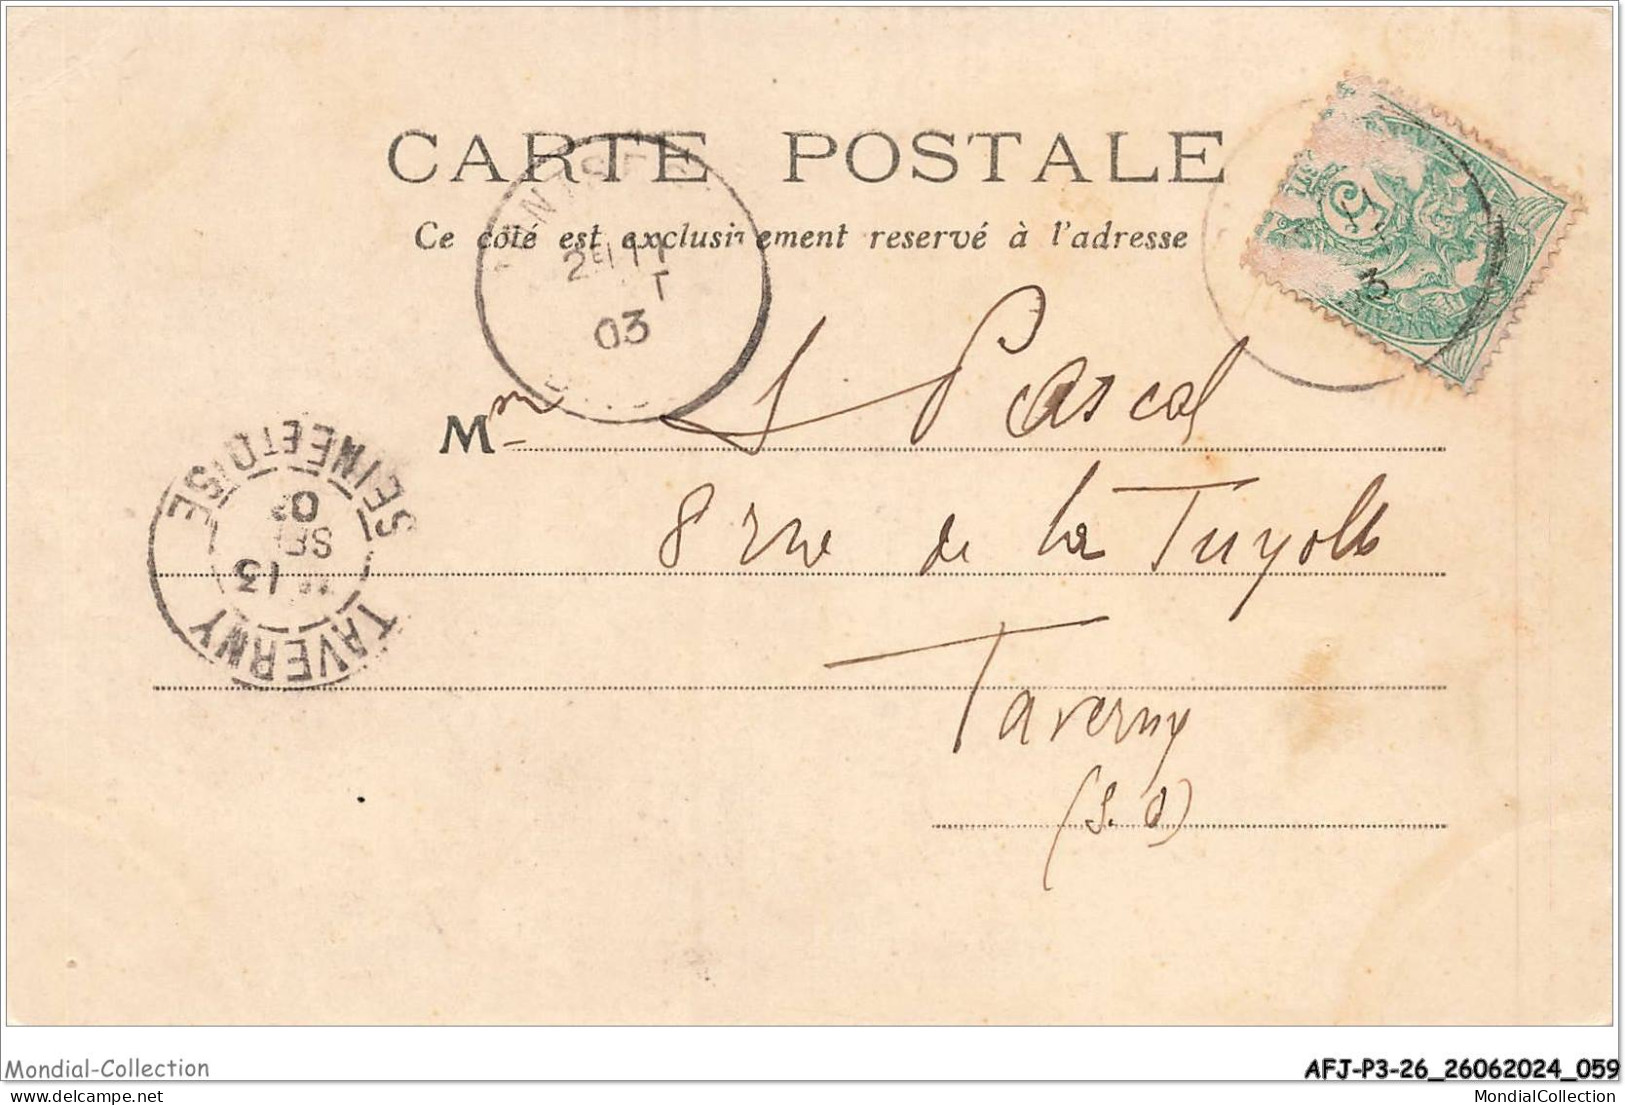 CARTE POSTALE
Ce côté est exclusivement reservé à l'adresse
03
Mm L Pascal
8 rue de la Tuyolle
Taverny
(S. O)
SEINE ET OISE
13
SE
03
TAVERNY
5
Mondial-Collection
AFJ-P3-26_26062024_059
delcampe.net
MondialCollection